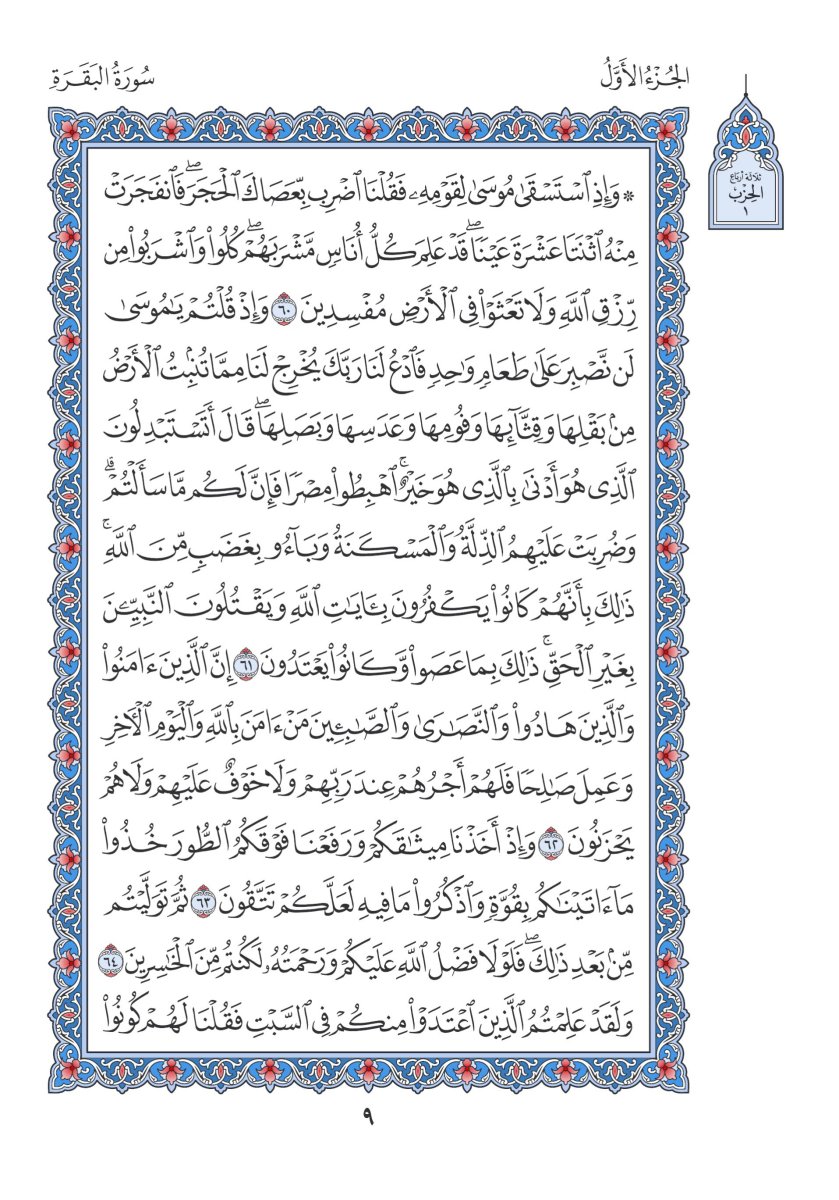 الجُزْءُ الأَوَّلُ
سُورَةُ البَقَرَةِ
ثلاثة أرباع
الحِزْب
١
۞ وَإِذِ ٱسْتَسْقَىٰ مُوسَىٰ لِقَوْمِهِۦ فَقُلْنَا ٱضْرِب بِّعَصَاكَ ٱلْحَجَرَۖ فَٱنفَجَرَتْ
مِنْهُ ٱثْنَتَا عَشْرَةَ عَيْنٗاۖ قَدْ عَلِمَ كُلُّ أُنَاسٖ مَّشْرَبَهُمْۖ كُلُوا۟ وَٱشْرَبُوا۟ مِن
رِّزْقِ ٱللَّهِ وَلَا تَعْثَوْا۟ فِي ٱلْأَرْضِ مُفْسِدِينَ ٦٠ وَإِذْ قُلْتُمْ يَٰمُوسَىٰ
لَن نَّصْبِرَ عَلَىٰ طَعَامٖ وَٰحِدٖ فَٱدْعُ لَنَا رَبَّكَ يُخْرِجْ لَنَا مِمَّا تُنۢبِتُ ٱلْأَرْضُ
مِنۢ بَقْلِهَا وَقِثَّآئِهَا وَفُومِهَا وَعَدَسِهَا وَبَصَلِهَاۖ قَالَ أَتَسْتَبْدِلُونَ
ٱلَّذِي هُوَ أَدْنَىٰ بِٱلَّذِي هُوَ خَيْرٌۚ ٱهْبِطُوا۟ مِصْرٗا فَإِنَّ لَكُم مَّا سَأَلْتُمْۗ
وَضُرِبَتْ عَلَيْهِمُ ٱلذِّلَّةُ وَٱلْمَسْكَنَةُ وَبَآءُو بِغَضَبٖ مِّنَ ٱللَّهِۚ
ذَٰلِكَ بِأَنَّهُمْ كَانُوا۟ يَكْفُرُونَ بِـَٔايَٰتِ ٱللَّهِ وَيَقْتُلُونَ ٱلنَّبِيِّـۧنَ
بِغَيْرِ ٱلْحَقِّۚ ذَٰلِكَ بِمَا عَصَوا۟ وَّكَانُوا۟ يَعْتَدُونَ ٦١ إِنَّ ٱلَّذِينَ ءَامَنُوا۟
وَٱلَّذِينَ هَادُوا۟ وَٱلنَّصَٰرَىٰ وَٱلصَّٰبِـِٔينَ مَنْ ءَامَنَ بِٱللَّهِ وَٱلْيَوْمِ ٱلْأٓخِرِ
وَعَمِلَ صَٰلِحٗا فَلَهُمْ أَجْرُهُمْ عِندَ رَبِّهِمْ وَلَا خَوْفٌ عَلَيْهِمْ وَلَا هُمْ
يَحْزَنُونَ ٦٢ وَإِذْ أَخَذْنَا مِيثَٰقَكُمْ وَرَفَعْنَا فَوْقَكُمُ ٱلطُّورَ خُذُوا۟
مَآ ءَاتَيْنَٰكُم بِقُوَّةٖ وَٱذْكُرُوا۟ مَا فِيهِ لَعَلَّكُمْ تَتَّقُونَ ٦٣ ثُمَّ تَوَلَّيْتُم
مِّنۢ بَعْدِ ذَٰلِكَۖ فَلَوْلَا فَضْلُ ٱللَّهِ عَلَيْكُمْ وَرَحْمَتُهُۥ لَكُنتُم مِّنَ ٱلْخَٰسِرِينَ ٦٤
وَلَقَدْ عَلِمْتُمُ ٱلَّذِينَ ٱعْتَدَوْا۟ مِنكُمْ فِي ٱلسَّبْتِ فَقُلْنَا لَهُمْ كُونُوا۟
٩